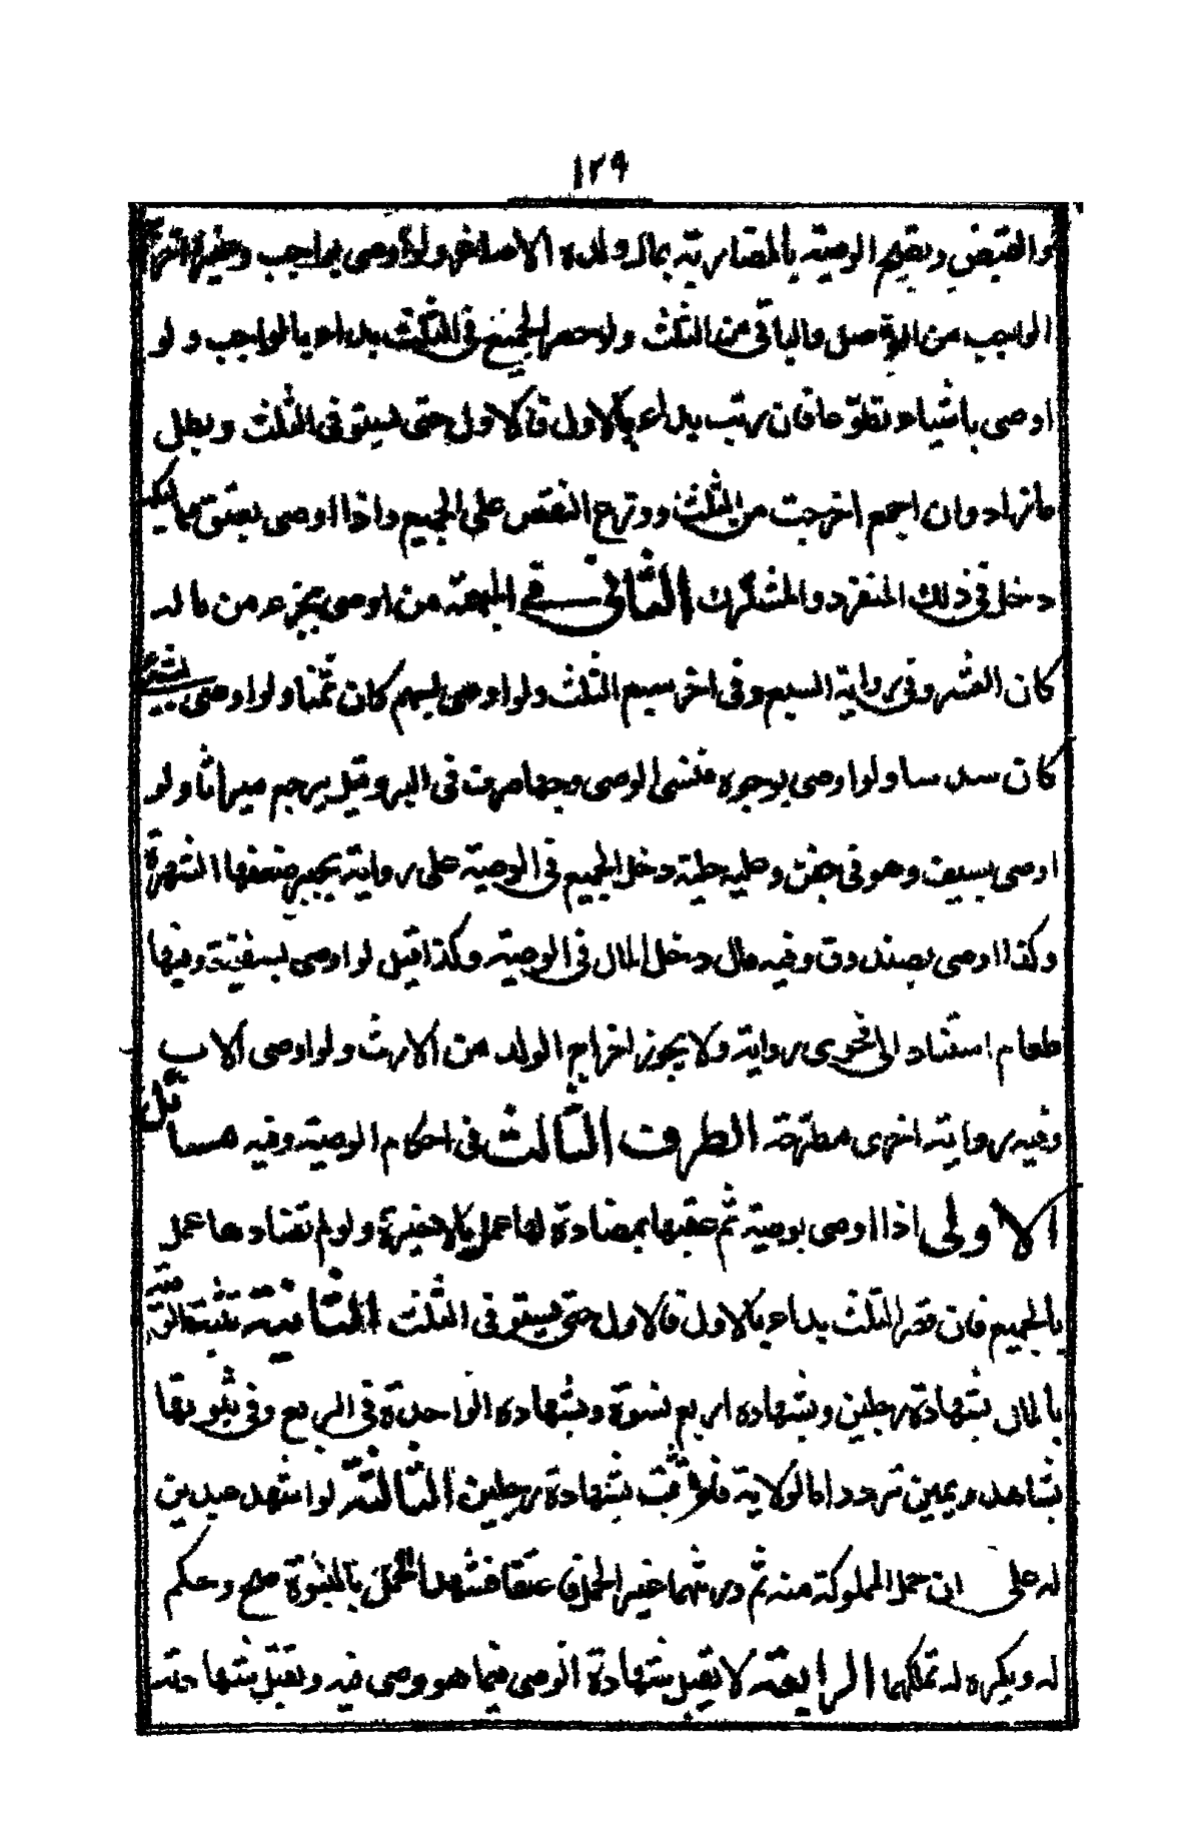 ١٢٩
والقبض وتصح الوصية بالمضاربة بمال ولده الاصاغر ولو أوصى بواجب وغيره اخرج
الواجب من الاصل والباقي من الثلث ولو حصر الجميع في الثلث بداء بالواجب ولو
اوصى باشياء تطوعا فان رتب بداء بالاول فالاول حتى يستوفى الثلث وبطل
ما زاد وان اجمع اخرجت من الثلث ووزع النقص على الجميع واذا اوصى بعتق مماليكه
دخل في ذلك المنفرد والمشترك الثانى في المبهمة من اوصى بجزء من ماله
كان العشر وفي رواية السبع وفى اخرى سبع الثلث ولو اوصى بسهم كان ثمنا ولو اوصى بشئ
كان سدسا ولو اوصى بوجوه فنسى الوصى وجها صرف فى البر وقيل يرجع ميراثا ولو
اوصى بسيف وهو فى جفن وعليه حلية دخل الجميع فى الوصية على رواية يجبر ضعفها الشهرة
وكذا اوصى بصندوق وفيه مال دخل المال فى الوصية وكذا قيل لو اوصى بسفينة وفيها
طعام استنادا الى فحوى رواية ولا يجوز اخراج الولد من الارث ولو اوصى الاب
وفيه رواية اخرى مطرحة الطرف الثالث فى احكام الوصية وفيه مسائل
الاولى اذا اوصى بوصية ثم عقبها بمضادة لها عمل بالاخيرة ولو لم تضادها عمل
بالجميع فان قصر الثلث بداء بالاول فالاول حتى يستوفى الثلث الثانية تثبت الوصية
بالمال بشهادة رجلين وبشهادة اربع نسوة وبشهادة الواحدة فى الربع وفى ثبوتها
بشاهد ويمين تردد اما الولاية فلا تثبت بشهادة رجلين الثالثة لو اشهد عبدين
له على ان حمل المملوكة منه ثم ورثهما غير الحمل فاعتقا فشهدا للحمل بالبنوة صح وحكم
له ويكره له تملكهما الرابعة لا تقبل شهادة الوصى فيما هو وصى فيه وتقبل شهادته